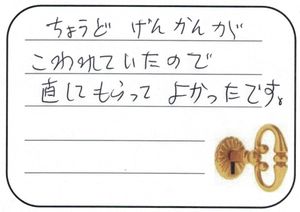 ちょうど げんかんが
こわれていたので
直してもらって よかったです。